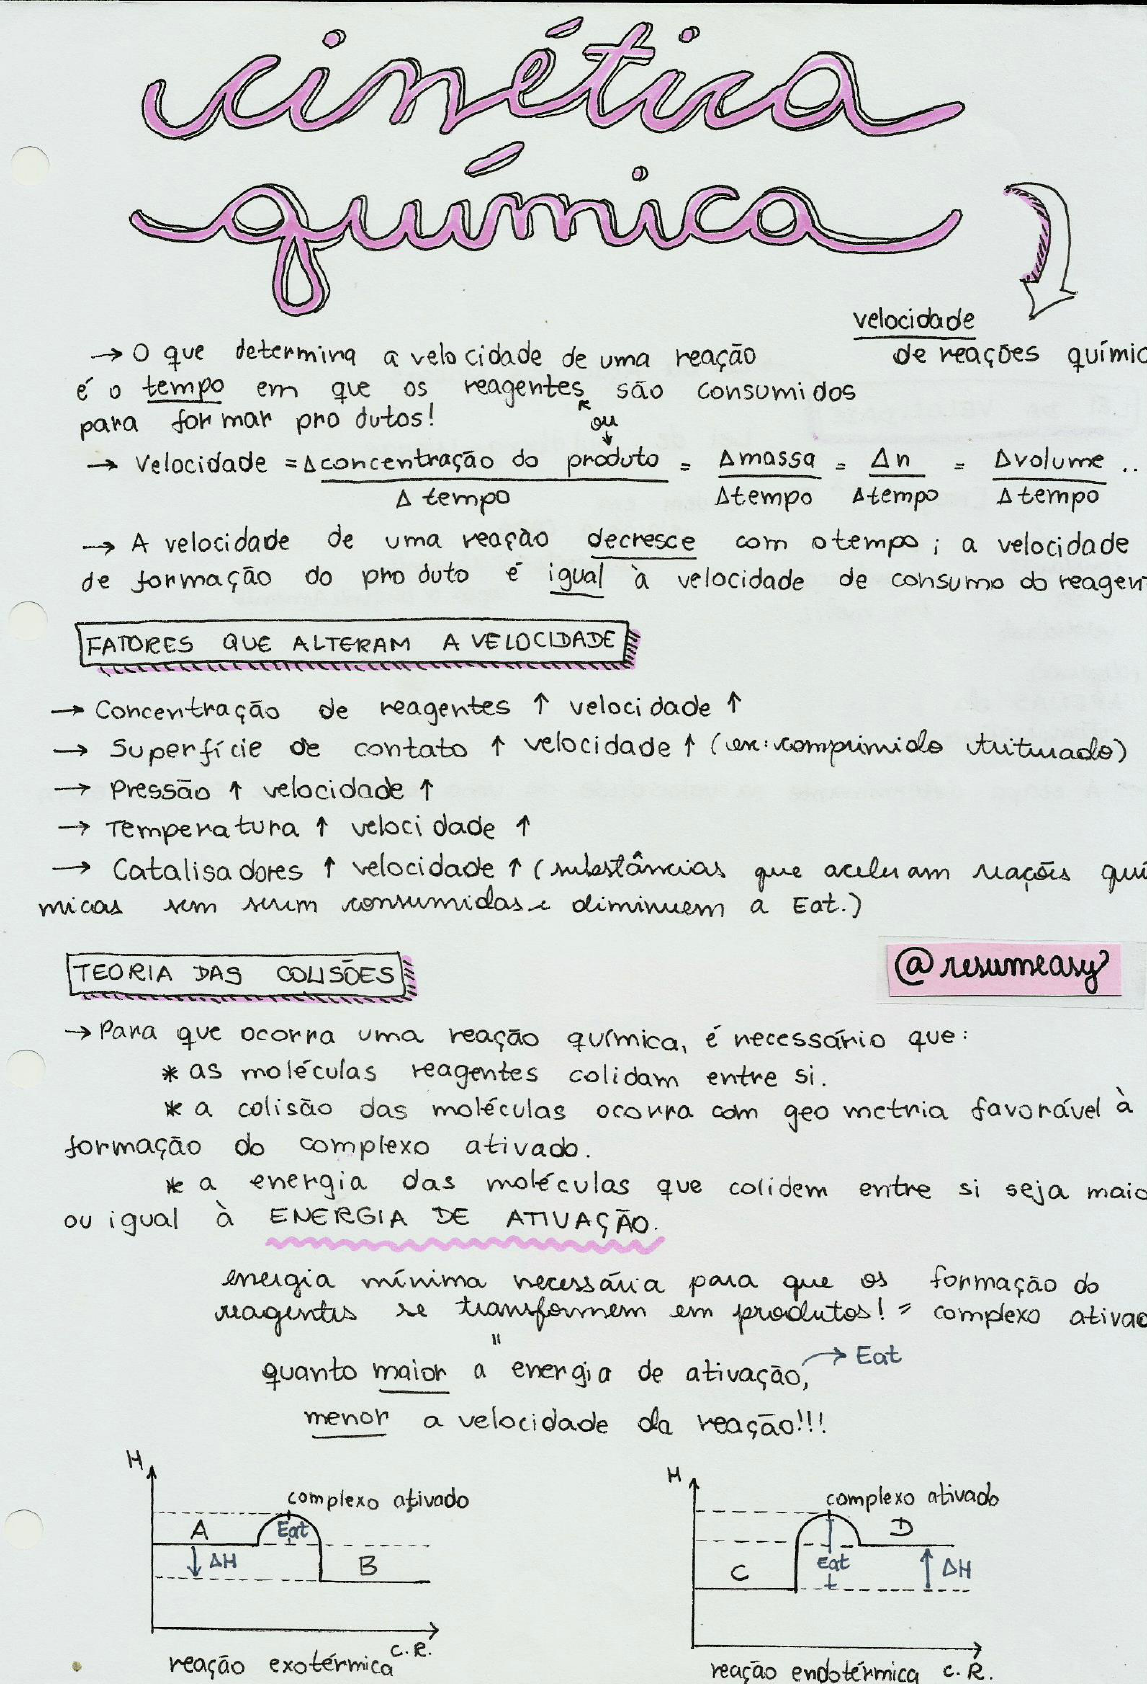 cinética
química
velocidade
de reações
→ O que determina a velocidade de uma reação
é o tempo em que os reagentes são consumidos
para formar produtos!
ou
→ Velocidade = Δconcentração do produto = Δmassa = Δn = Δvolume ..
Δ tempo Δtempo Δtempo Δ tempo
→ A velocidade de uma reação decresce com o tempo; a velocidade
de formação do produto é igual à velocidade de consumo do
FATORES QUE ALTERAM A VELOCIDADE
→ Concentração de reagentes ↑ velocidade ↑
→ Superfície de contato ↑ velocidade ↑ (ex: comprimido triturado)
→ Pressão ↑ velocidade ↑
→ Temperatura ↑ velocidade ↑
→ Catalisadores ↑ velocidade ↑ (substâncias que aceleram reações quí
micas sem serem consumidas e diminuem a Eat.)
TEORIA DAS COLISÕES
@resumeasy
→ Para que ocorra uma reação química, é necessário que:
* as moléculas reagentes colidam entre si.
* a colisão das moléculas ocorra com geometria favorável à
formação do complexo ativado.
* a energia das moléculas que colidem entre si seja maio
ou igual à ENERGIA DE ATIVAÇÃO.
energia mínima necessária para que os formação do
reagentes se transformem em produtos! = complexo ativad
"
quanto maior a energia de ativação, → Eat
menor a velocidade da reação!!!
H
complexo ativado
A
Eat
ΔH
B
C.R.
reação exotérmica
H
complexo ativado
D
Eat
C
ΔH
reação endotérmica C.R.